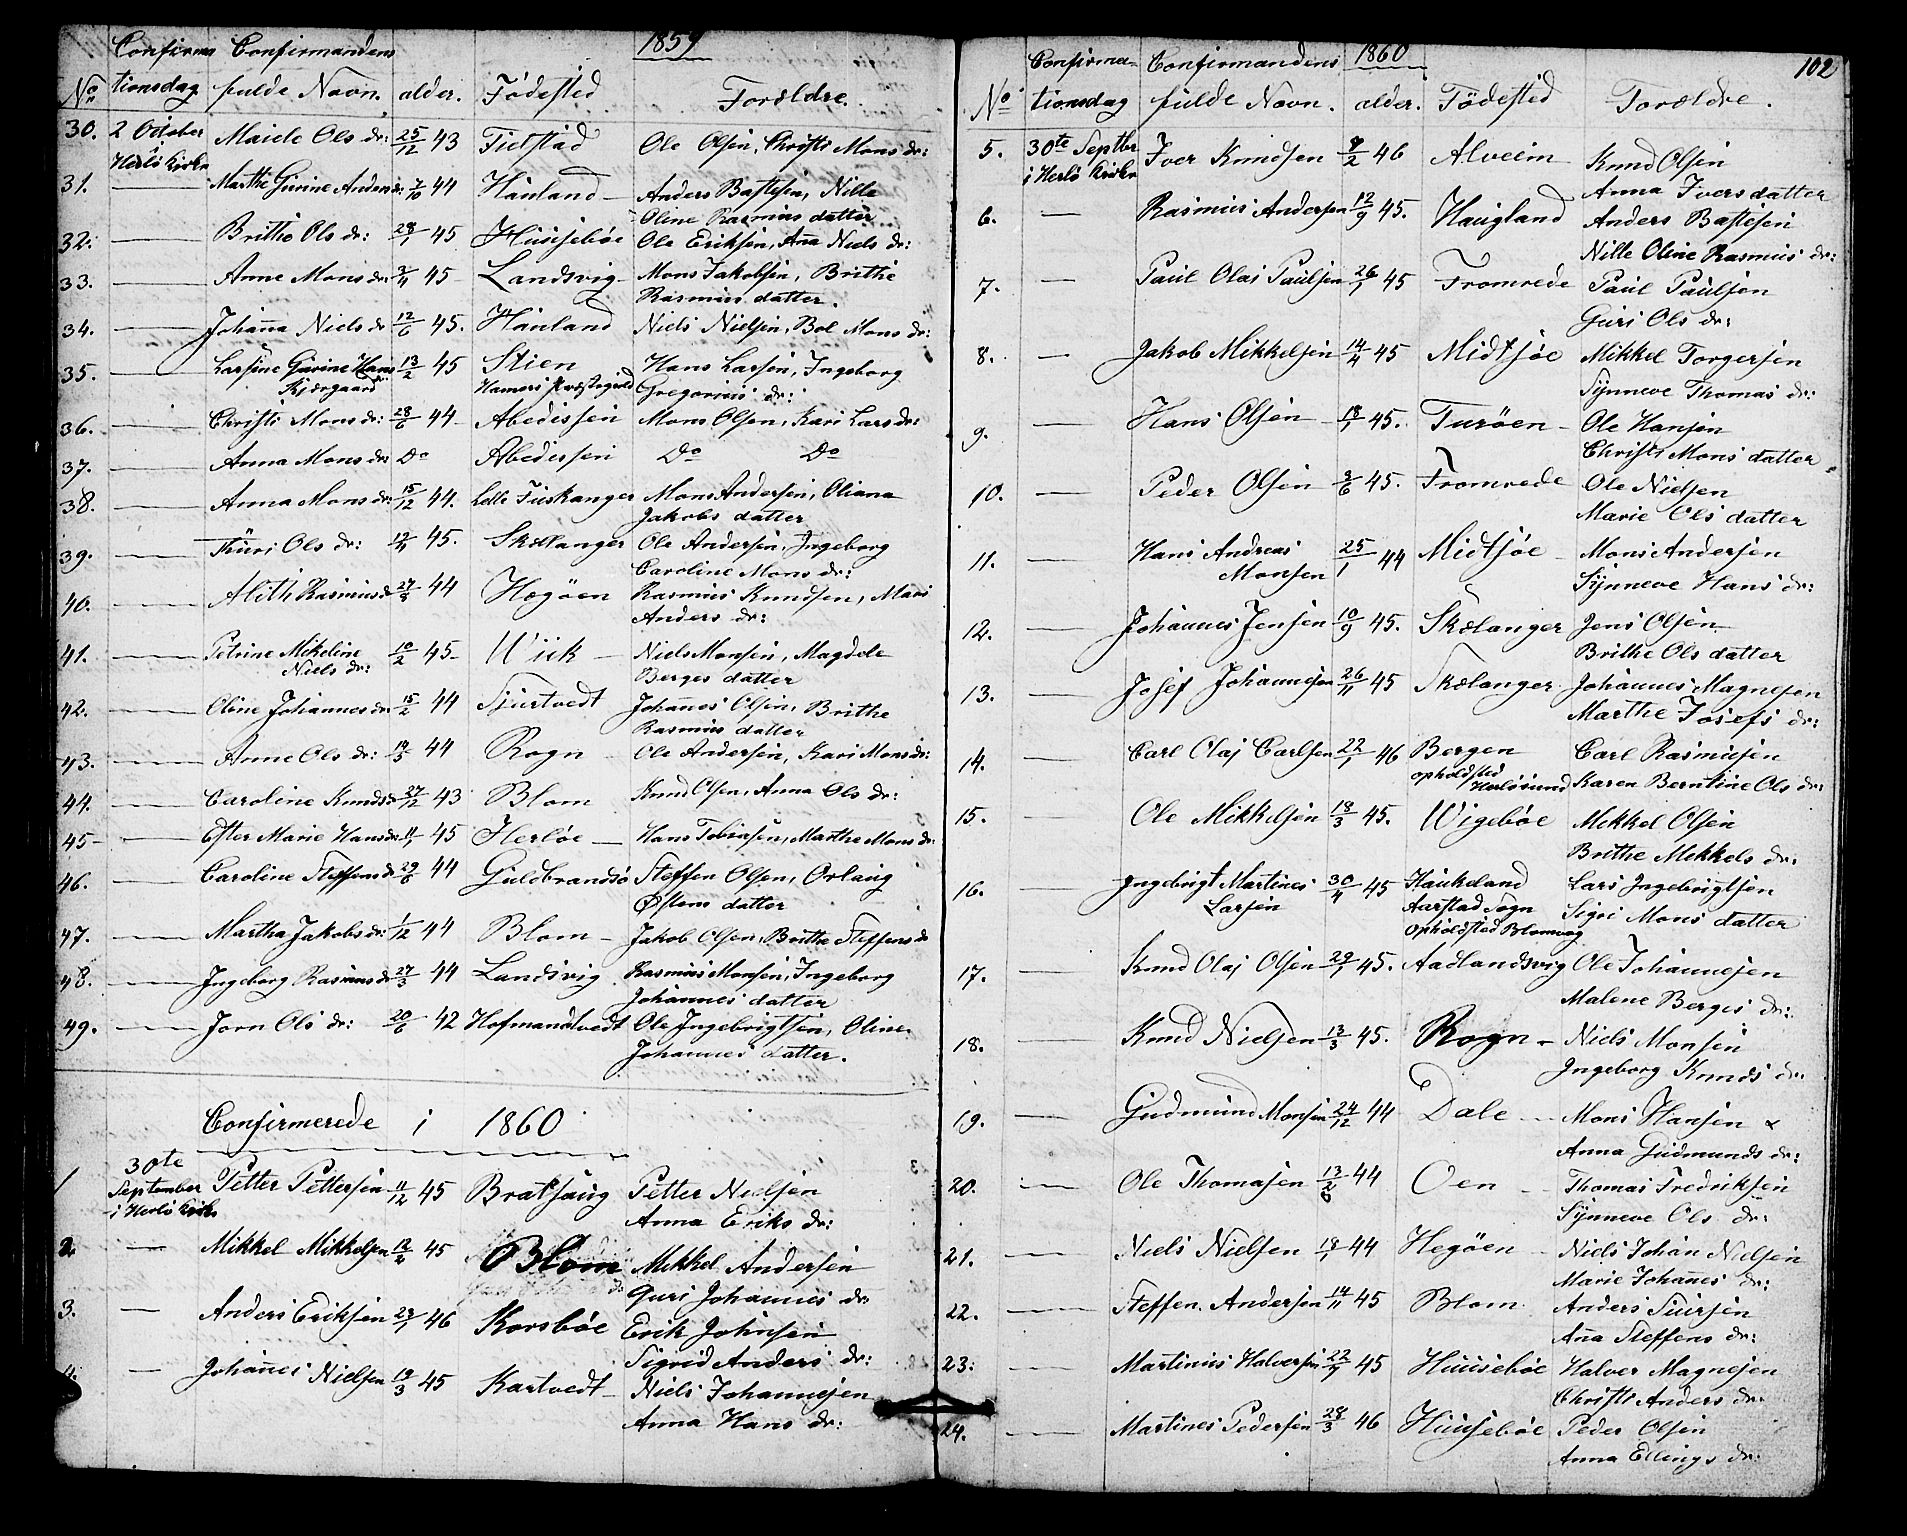 1859
Confirma- Confirmandens
No tionsdag fulde Navn. alder. Fødested Forældre.
30. 2 October Maide Ols dr: 25/12 43 Fielstad Ole Olsen, Christi Mons dr:
i Herlö Kirke
31. Marthe Gurine Anders dr: 7/10 44 Hanland Anders Bastesen, Nille
Oline Rasmus datter
32. Brithe Ols dr: 28/1 45 Huusebøe Ole Eriksen, Ana Niels dr:
33. Anne Mons dr: 3/4 45 Landsvig Mons Jakobsen, Brithe
Rasmus datter.
34. Johana Niels dr 12/6 45. Hanland Niels Nielsen, Bol Mons dr:
35. Larsine Gurine Hans dr 13/2 45 Stien Hans Larsen, Ingeborg
Kjærgaard Hammers Præstegield Gregorius dr:
36. Christi Mons dr: 28/6 44 Abedissen Mons Olsen, Kari Lars dr:
37. Anna Mons dr Do Abedissen Do Do
38. Anna Mons dr: 15/12 44. Lille Fuskanger Mons Andersen, Oliana
Jakobs datter
39. Thuri Ols dr: 12/11 45. Skælanger Ole Andersen, Ingeborg
Caroline Mons dr:
40. Alith Rasmus dr 27/3 44 Hægøen Rasmus Knudsen, Mari
Anders dr:
41. Petrine Mikeline 10/2 45 Wiik Niels Monsen, Magdele
Niels dr: Berges datter
42. Oline Johannes dr 15/2 44 Tjurtvedt Johanes Olsen, Brithe
Rasmus datter
43. Anne Ols dr: 14/5 44 Rogn Ole Andersen, Kari Mons dr:
44. Caroline Knuds dr 27/12 43 Blom Knud Olsen, Anna Ols dr:
45 Ester Marie Hans dr 11/1 45 Herløe Hans Tobiasen, Marthe Mons dr:
46. Caroline Steffens dr 29/6 44 Guldbrandsö Steffen Olsen, Orlaug
Østens datter
47. Martha Jakobs dr: 1/12 44 Blom Jakob Olsen, Brithe Steffens dr
48. Ingeborg Rasmus dr 27/3 44 Landsvig Rasmus Monsen, Ingeborg
Johannes datter
49. Jorn Ols dr: 20/6 42 Hofmandtvedt Ole Ingebrigtsen, Oline
Johannes datter.
Confirmerede i 1860
30te
1 September Petter Pettersen 11/12 45 Bratsoug Petter Nielsen
i Herlö Kirke Anna Eriks dr:
2. Mikkel Mikkelsen 12/2 45 Blom Mikkel Andersen
Guri Johannes dr
3. Anders Eriksen 23/1 46 Korsbøe Erik Johnsen
Sigrid Anders dr:
4. Johanes Nielsen 19/3 45 Kartvedt Niels Johannesen
Anna Hans dr:
102
1860
Confirma- Confirmandens
No tionsdag fulde Navn. alder. Fødested Forældre.
5. 30te Septbr Iver Knudsen 8/2 46 Alveim Knud Olsen
i Herlö Kirke Anna Ivers datter
6. Rasmus Andersen 12/9 45. Haugland Anders Bastesen
Nille Oline Rasmus dr:
7. Paul Olai Paulsen 26/1 45 Fromrede Paul Paulsen
Guri Ols dr:
8. Jakob Mikkelsen 14/4 45 Midtsøe Mikkel Torgersen
Synneve Thomas dr:
9. Hans Olsen 18/1 45. Turöen Ole Hansen
Christi Mons datter
10. Peder Olsen 3/6 45. Fromrede Ole Nielsen
Marie Ols datter
11. Hans Andreas 25/1 44 Midtsøe Mons Andersen
Monsen Synneve Hans dr:
12. Johannes Jensen 10/9 45. Skælanger Jens Olsen
Brithe Ols datter
13. Josef Johannesen 26/11 45 Skælanger Johannes Magnesen
Marthe Josefs dr:
14. Carl Olai Carlsen 22/1 46 Bergen Carl Rasmusen
opholdsted Herlösund Karen Berntine Ols dr:
15. Ole Mikkelsen 18/3 45. Wigebøe Mikkel Olsen
Brithe Mikkels dr:
16. Ingebrigt Martines 30/4 45 Haukeland Lars Ingebrigtsen
Larsen Aarstad Sogn Sigri Mons datter
Opholdsted Blomvag
17. Knud Olai Olsen 29/1 45. Aadlandsvig Ole Johannesen
Malene Berges dr:
18. Knud Nielsen 13/3 45. Rogn Niels Monsen
Ingeborg Knuds dr:
19. Gudmund Monsen 24/12 44 Dale Mons Hansen &
Anna Gudmunds dr:
20. Ole Thomasen 13/8 44 Oen Thomas Fredriksen
Synneve Ols dr:
21. Niels Nielsen 18/1 44 Hegøen Niels Johan Nielsen
Marie Johanes dr:
22. Steffen Andersen 14/11 45 Blom Anders Siursen
Ana Steffens dr:
23. Martinus Halversen 22/9 45 Huusebøe Halver Magnesen
Christi Anders dr:
24. Martines Pedersen 28/3 46 Huusebøe Peder Olsen
Anna Ellings dr: